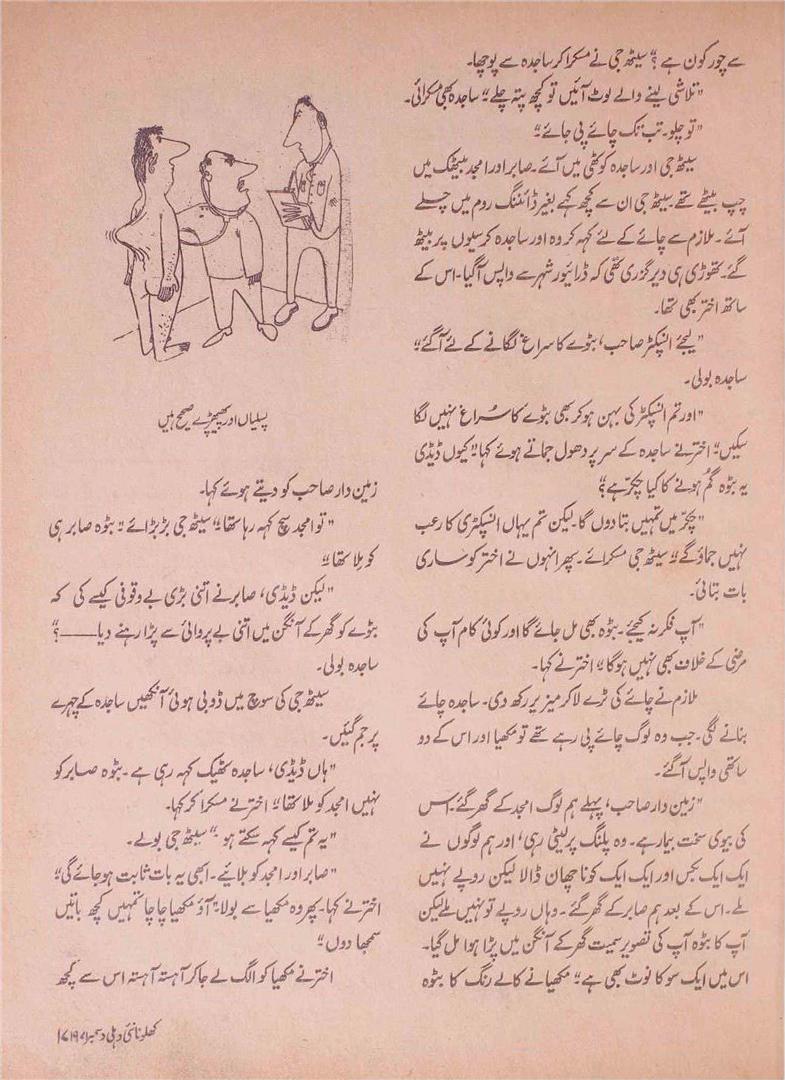 سے چور کون ہے؟“ سیٹھ جی نے مسکرا کر ساجدہ سے پوچھا۔
”تلاشی لینے والے لوٹ آئیں تو کچھ پتہ چلے“ ساجدہ بھی مسکرائی۔
”تو چلو۔ تب تک چائے پی جائے“
سیٹھ جی اور ساجدہ کوٹھی میں آئے۔ صابر اور امجد بیٹھک میں
چپ بیٹھے تھے۔ سیٹھ جی ان سے کچھ کہے بغیر ڈائننگ روم میں چلے
آئے۔ ملازم سے چائے کے لئے کہہ کر وہ اور ساجدہ کرسیوں پر بیٹھ
گئے۔ تھوڑی ہی دیر گزری تھی کہ ڈرائیور شہر سے واپس آگیا۔ اس کے
ساتھ اختر بھی تھا۔
”لیجئے انسپکٹر صاحب، بٹوے کا سراغ لگانے کے لئے آگئے“
ساجدہ بولی۔
”اور تم انسپکٹر کی بہن ہو کر بھی بٹوے کا سُراغ نہیں لگا
سکیں“ اختر نے ساجدہ کے سر پر دھول جماتے ہوئے کہا ”کیوں ڈیڈی
یہ بٹوہ گم ہونے کا کیا چکّر ہے؟“
”چکّر میں تمہیں بتا دوں گا۔ لیکن تم یہاں انسپکٹری کا رعب
نہیں جماؤ گے“ سیٹھ جی مسکرائے۔ پھر انہوں نے اختر کو ساری
بات بتائی۔
”آپ فکر نہ کیجئے۔ بٹوہ بھی مل جائے گا اور کوئی کام آپ کی
مرضی کے خلاف بھی نہیں ہوگا“ اختر نے کہا۔
ملازم نے چائے کی ٹرے لاکر میز پر رکھ دی۔ ساجدہ چائے
بنانے لگی۔ جب وہ لوگ چائے پی رہے تھے تو مکھیا اور اس کے دو
ساتھی واپس آگئے۔
”زمین دار صاحب، پہلے ہم لوگ امجد کے گھر گئے۔ اس
کی بیوی سخت بیمار ہے۔ وہ پلنگ پر لیٹی رہی، اور ہم لوگوں نے
ایک ایک بکس اور ایک ایک کونا چھان ڈالا لیکن روپے نہیں
ملے۔ اس کے بعد ہم صابر کے گھر گئے۔ وہاں روپے تو نہیں ملے لیکن
آپ کا بٹوہ آپ کی تصویر سمیت گھر کے آنگن میں پڑا ہوا مل گیا۔
اس میں ایک سو کا نوٹ بھی ہے“ مکھیا نے کالے رنگ کا بٹوہ
پسلیاں اور پھیپھڑے صحیح ہیں
زمین دار صاحب کو دیتے ہوئے کہا۔
”تو امجد سچ کہہ رہا تھا“ سیٹھ جی بڑبڑائے ”بٹوہ صابر ہی
کو ملا تھا“
”لیکن ڈیڈی، صابر نے اتنی بڑی بے وقوفی کیسے کی کہ
بٹوے کو گھر کے آنگن میں اتنی بے پروائی سے پڑا رہنے دیا——؟“
ساجدہ بولی۔
سیٹھ جی کی سوچ میں ڈوبی ہوئی آنکھیں ساجدہ کے چہرے
پر جم گئیں۔
”ہاں ڈیڈی، ساجدہ ٹھیک کہہ رہی ہے۔ بٹوہ صابر کو
نہیں امجد کو ملا تھا“ اختر نے مسکرا کر کہا۔
”یہ تم کیسے کہہ سکتے ہو۔“ سیٹھ جی بولے۔
”صابر اور امجد کو بلائیے۔ ابھی یہ بات ثابت ہو جائے گی“
اختر نے کہا۔ پھر وہ مکھیا سے بولا ”آؤ مکھیا چاچا تمہیں کچھ باتیں
سمجھا دوں“
اختر نے مکھیا کو الگ لے جا کر آہستہ آہستہ اس سے کچھ
کھلونا نئی دہلی دسمبر ۱۹۷۱ء